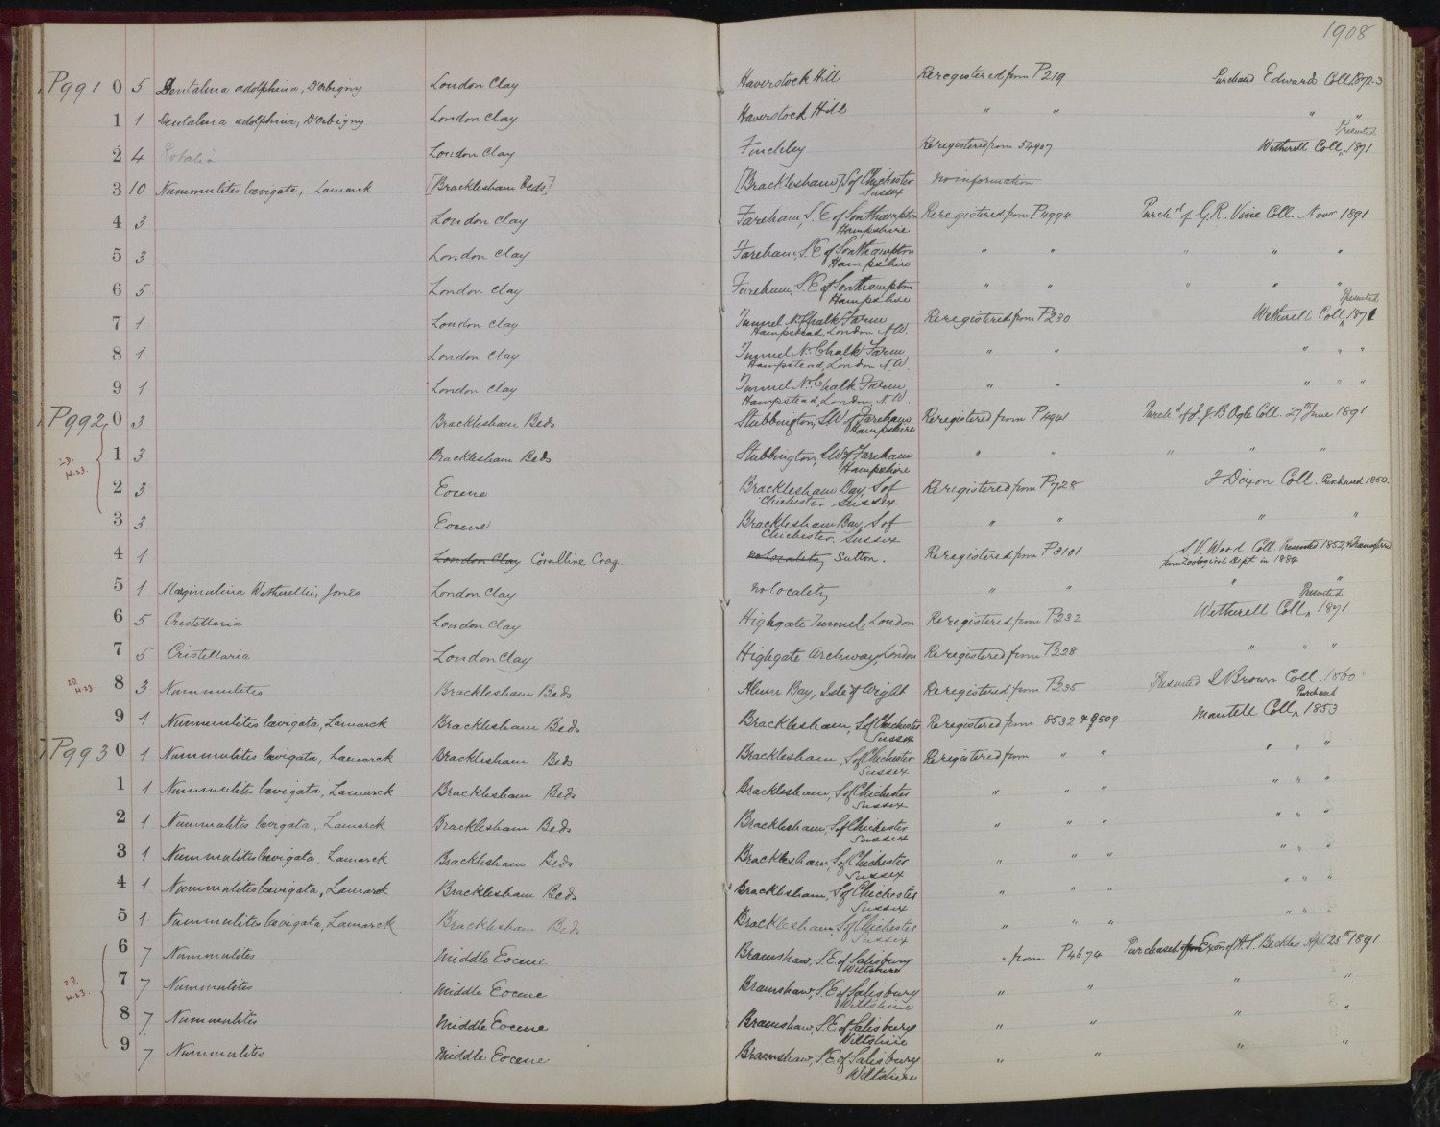 1908
P991 0 5 Dentalina adolphina, D'Orbigny London Clay Haverstock Hill Reregistered from P219 Purchased Edwards Coll. 1872-3
1 1 Dentalina adolphina, D'Orbigny London Clay Haverstock Hill " " " "
2 4 Rotalia London Clay Finchley Reregistered from 54407 Wetherell Coll. Presented 1871
3 10 Nummulites lævigata, Lamarck [Bracklesham Beds] [Bracklesham] S of Chichester Sussex No information
4 3 London Clay Fareham, S.E of Southampton Hampshire Reregistered from P4994 Purchd of G.R. Vine Coll. Novr 1891
5 3 London Clay Fareham, S.E of Southampton Hampshire " " " " "
6 5 London Clay Fareham, S.E of Southampton Hampshire " " " " "
7 1 London Clay Tunnel Nr Chalk Farm Hampstead, London N.W. Reregistered from P230 Wetherell Coll. Presented 1871
8 1 London Clay Tunnel Nr Chalk Farm Hampstead, London N.W. " " " " "
9 1 London Clay Tunnel Nr Chalk Farm, Hampstead, London, N.W. " " " " "
P992 0 3 Bracklesham Beds Stubbington, S.W of Fareham Hampshire Reregistered from P4941 Purchd of J.B Ogle Coll. 27th June 1891
1 3 Bracklesham Beds Stubbington, S.W of Fareham Hampshire " " " " "
2 3 Eocene Bracklesham Bay, S of Chichester Sussex Reregistered from P728 F Dixon Coll. Purchased 1850.
3 3 Eocene Bracklesham Bay, S of Chichester. Sussex " " " "
4 1 London Clay Coralline Crag. no locality Sutton. Reregistered from P3101 S.V. Wood Coll. Presented 1852, & Transferred from Zoological Dept. in 1884
5 1 Marginulina Wetherellii, Jones London Clay No locality " " " "
6 5 Cristellaria London Clay Highgate Tunnel, London Reregistered from P232 Wetherell Coll. Presented 1871
7 5 Cristellaria London Clay Highgate Archway, London Reregistered from P228 " " "
8 3 Nummulites Bracklesham Beds Alum Bay, Isle of Wight Reregistered from P235 Presented I Brown Coll. 1860
9 1 Nummulites lævigata, Lamarck Bracklesham Beds Bracklesham, S of Chichester Sussex Reregistered from 8532 & 9509 Mantell Coll. Purchased 1853
P993 0 1 Nummulites lævigata, Lamarck Bracklesham Beds Bracklesham, S of Chichester Sussex Reregistered from " " " " "
1 1 Nummulites lævigata, Lamarck Bracklesham Beds Bracklesham, S of Chichester Sussex " " " " " "
2 1 Nummulites lævigata, Lamarck Bracklesham Beds Bracklesham, S of Chichester Sussex " " " " " "
3 1 Nummulites lævigata, Lamarck Bracklesham Beds Bracklesham, S of Chichester Sussex " " " " " "
4 1 Nummulites lævigata, Lamarck Bracklesham Beds Bracklesham, S of Chichester Sussex " " " " " "
5 1 Nummulites lævigata, Lamarck Bracklesham Beds Bracklesham, S of Chichester Sussex " " " " " "
6 7 Nummulites Middle Eocene Bramshaw, S.E. of Salisbury Wiltshire " from P4674 Purchased from Exors of H.S. Beckles Apl. 25th 1891
7 7 Nummulites Middle Eocene Bramshaw, S.E of Salisbury Wiltshire " " " "
8 7 Nummulites Middle Eocene Bramshaw, S.E of Salisbury Wiltshire " " " "
9 7 Nummulites Middle Eocene Bramshaw, S.E of Salisbury Wiltshire " " " "